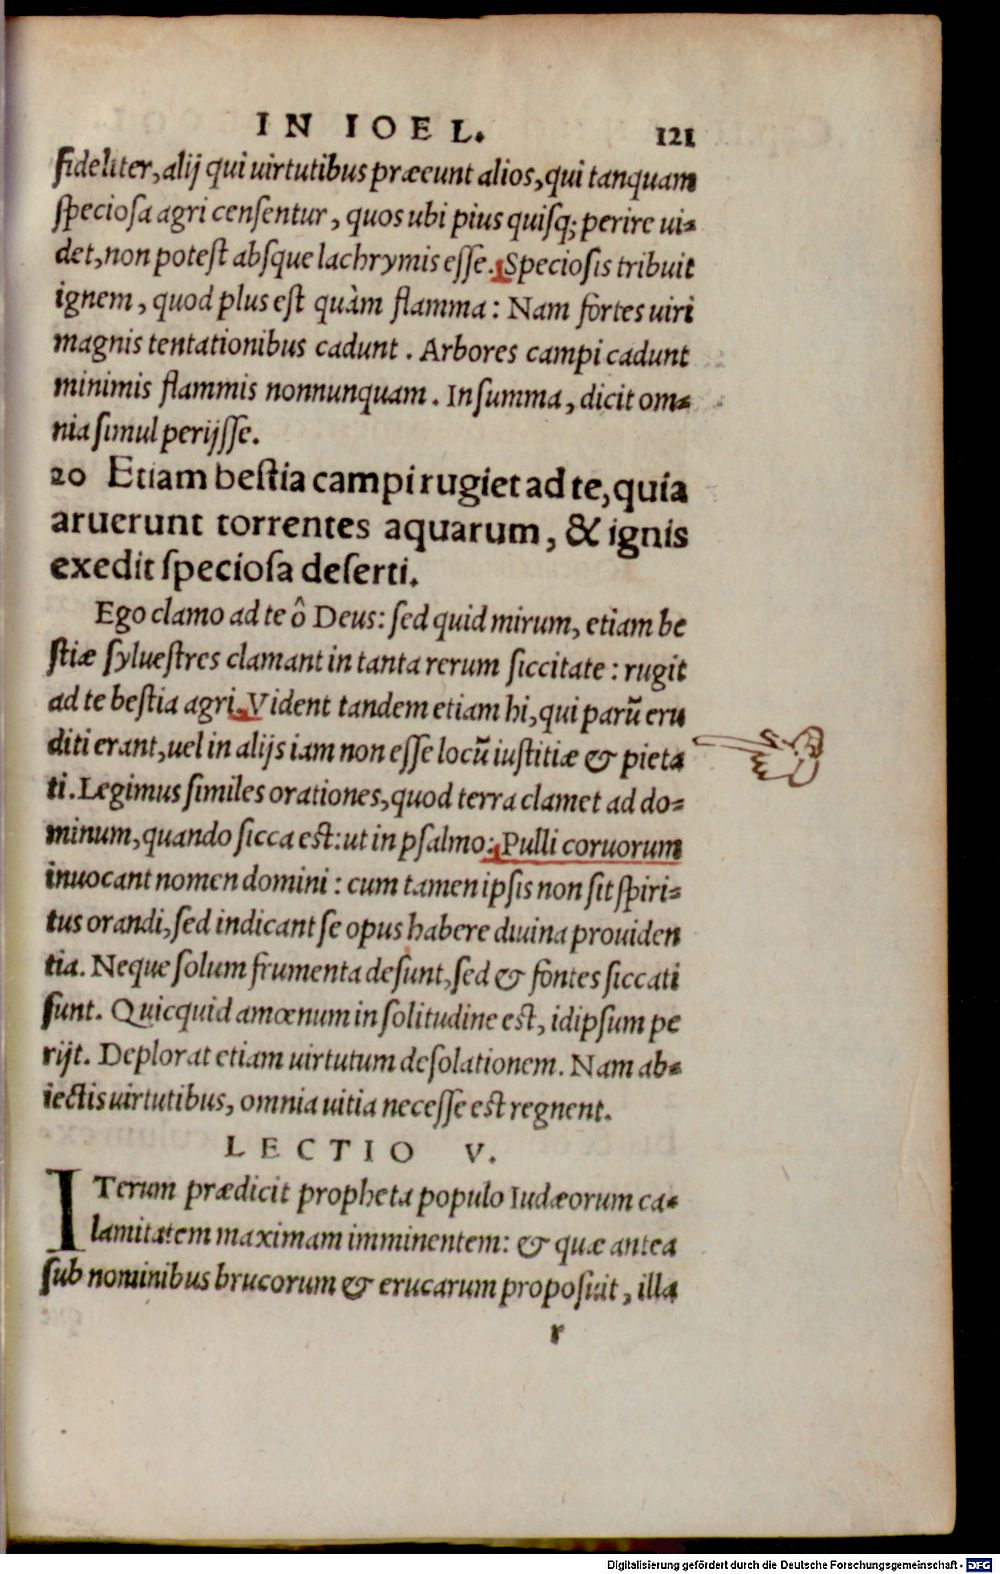 IN IOEL. 121
fideliter, alij qui uirtutibus præeunt alios, qui tanquam
ſpecioſa agri cenſentur, quos ubi pius quiſq; perire ui-
det, non poteſt abſque lachrymis eſſe. Specioſis tribuit
ignem, quod plus eſt quàm flamma: Nam fortes uiri
magnis tentationibus cadunt. Arbores campi cadunt
minimis flammis nonnunquam. In ſumma, dicit om-
nia ſimul perijſſe.
20 Etiam beſtia campi rugiet ad te, quia
aruerunt torrentes aquarum, & ignis
exedit ſpecioſa deſerti.
Ego clamo ad te ô Deus: ſed quid mirum, etiam be
ſtiæ ſylueſtres clamant in tanta rerum ſiccitate: rugit
ad te beſtia agri. Vident tandem etiam hi, qui parũ eru
diti erant, uel in alijs iam non eſſe locũ iuſtitiæ & pieta
ti. Legimus ſimiles orationes, quod terra clamet ad do-
minum, quando ſicca eſt: ut in pſalmo: Pulli coruorum
inuocant nomen domini: cum tamen ipſis non ſit ſpiri-
tus orandi, ſed indicant ſe opus habere diuina prouiden
tia. Neque ſolum frumenta deſunt, ſed & fontes ſiccati
ſunt. Quicquid amœnum in ſolitudine eſt, idipſum pe
rijt. Deplorat etiam uirtutum deſolationem. Nam ab-
iectis uirtutibus, omnia uitia neceſſe eſt regnent.
LECTIO V.
ITerum prædicit propheta populo Iudæorum ca-
lamitatem maximam imminentem: & quæ antea
ſub nominibus brucorum & erucarum propoſuit, illa
r
Digitalisierung gefördert durch die Deutsche Forschungsgemeinschaft - DFG